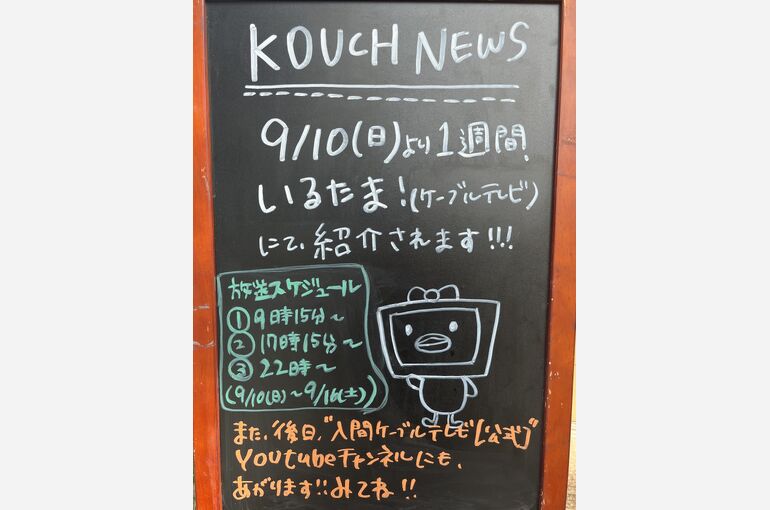 KOUCH NEWS
9/10(日)より1週間
いるたま！(ケーブルテレビ)
にて、紹介されます!!!
放送スケジュール
① 9時15分〜
② 17時15分〜
③ 22時〜
(9/10(日)〜9/16(土))
また、後日、"入間ケーブルテレビ[公式]"
YouTubeチャンネルにも、
あがります!!みてね!!